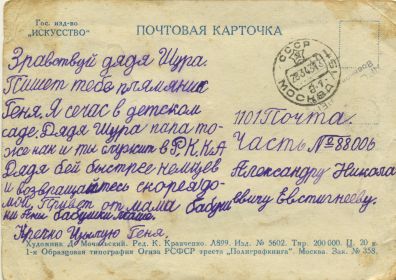 Гос. изд-во
"ИСКУССТВО"
ПОЧТОВАЯ КАРТОЧКА
Зравствуй дядя Шура.
Пишет тебе плямяник
Геня. Я сечас в детском
саде. Дядя Шура папа то-
же как и ти служит в Р.К.К.А
Дядя бей быстрее немцев
и возвращайтесь скорея до-
мой. Привет от мамы бабуш
ки Ани бабушки Маши.
Кречко Цулую Геня.
1101 Почта.
Часть № 88006
Александру Никола
евичу Евстигнееву.
СССР
МОСКВА
Художник Д. Мочальский. Ред. К. Кравченко. Л899. Изд. № 5602. Тир. 200 000. Ц. 20 к.
1-я Образцовая типография Огиза РСФСР треста „Полиграфкнига". Москва. Зак. № 358.